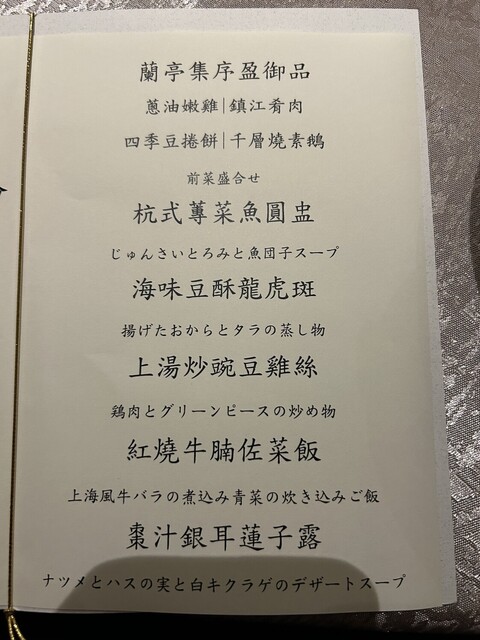 蘭亭集序盈御品
蔥油嫩雞|鎮江肴肉
四季豆捲餅|千層燒素鵝
前菜盛合せ
杭式蓴菜魚圓盅
じゅんさいとろみと魚団子スープ
海味豆酥龍虎斑
揚げたおからとタラの蒸し物
上湯炒豌豆雞絲
鶏肉とグリーンピースの炒め物
紅燒牛腩佐菜飯
上海風牛バラの煮込み青菜の炊き込みご飯
棗汁銀耳蓮子露
ナツメとハスの実と白キクラゲのデザートスープ